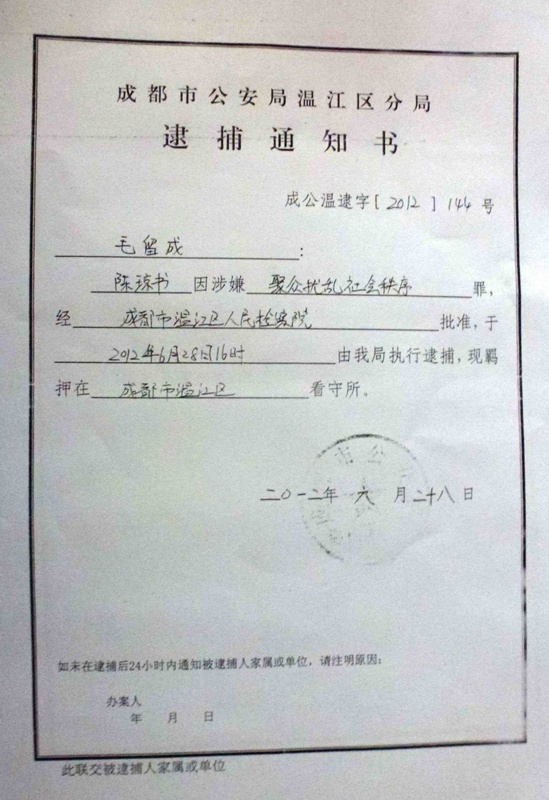 成都市公安局温江区分局
逮捕通知书
成公温逮字[2012]144号
毛留成:
陈琼书因涉嫌聚众扰乱社会秩序罪,
经成都市温江区人民检察院批准,于
2012年6月28日16时由我局执行逮捕,现羁
押在成都市温江区看守所。
市公
二〇一二年六月二十八日
如未在逮捕后24小时内通知被逮捕人家属或单位,请注明原因:
办案人
年月日
此联交被逮捕人家属或单位